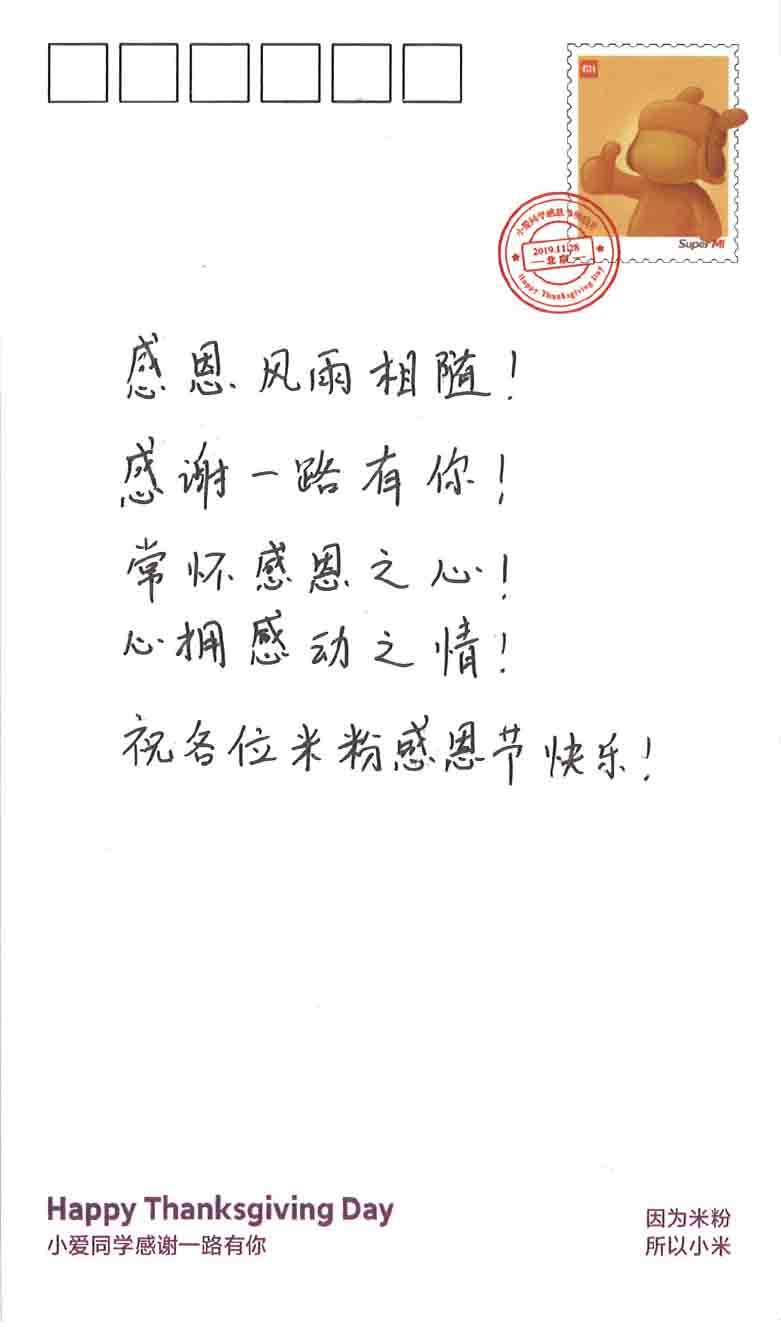 MI
Super MI
小爱同学感恩
2019.11.28
北京
Happy Thanksgiving Day
感恩风雨相随！
感谢一路有你！
常怀感恩之心！
心拥感动之情！
祝各位米粉感恩节快乐！
Happy Thanksgiving Day
小爱同学感谢一路有你
因为米粉
所以小米